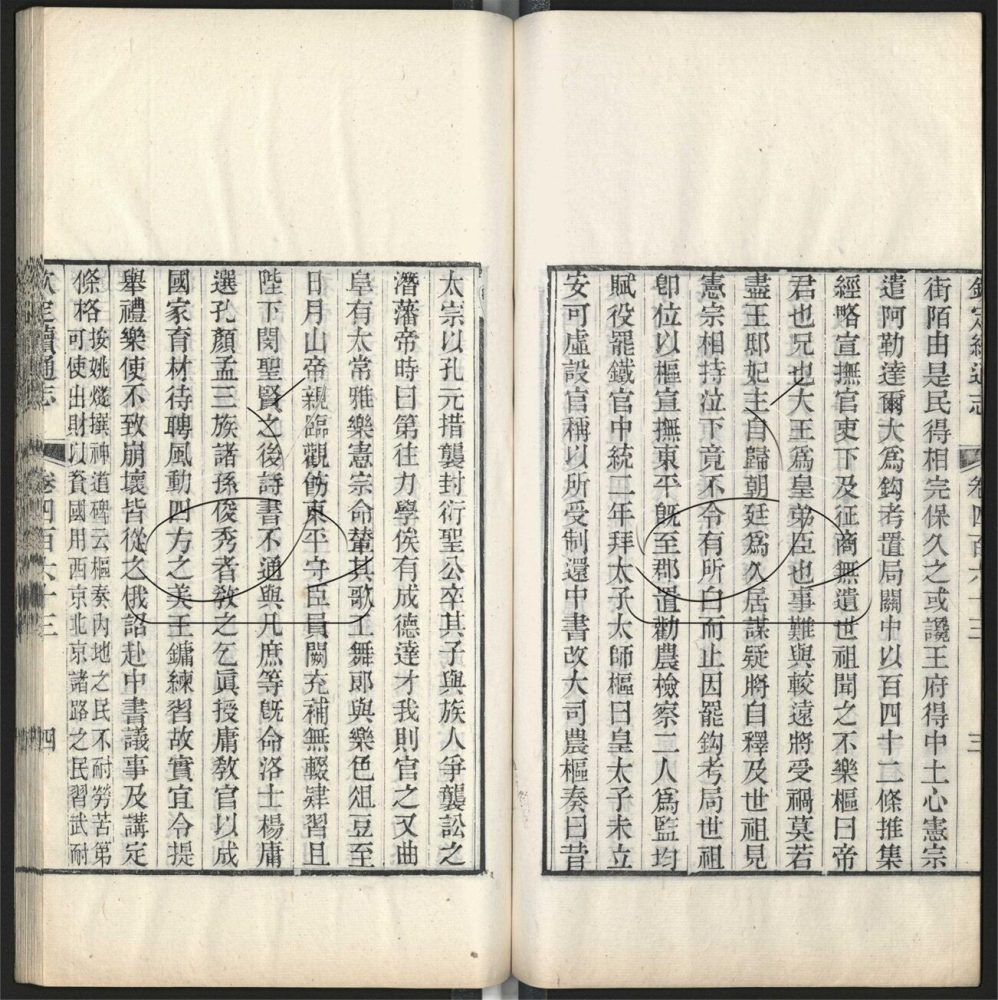 欽定續通志 卷四百六十三 三
街陌由是民得相完保久之或讒王府得中土心憲宗
遣阿勒達爾大為鈎考置局關中以百四十二條推集
經略宣撫官吏下及征商無遺世祖聞之不樂樞曰帝
君也兄也大王為皇弟臣也事難與較遠將受禍莫若
盡王邸妃主自歸朝廷為久居謀疑將自釋及世祖見
憲宗相持泣下竟不令有所白而止因罷鈎考局世祖
卽位以樞宣撫東平旣至郡置勸農檢察二人為監均
賦役罷鐵官中統二年拜太子太師樞曰皇太子未立
安可虛設官稱以所受制還中書改大司農樞奏曰昔
太宗以孔元措襲封衍聖公卒其子與族人爭襲訟之
潛藩帝時曰第往力學俟有成德達才我則官之又曲
阜有太常雅樂憲宗命輦其歌工舞郎與樂色俎豆至
日月山帝親臨觀飭東平守臣員闕充補無輟肄習且
陛下閔聖賢之後詩書不通與凡庶等旣命洛士楊庸
選孔顏孟三族諸孫俊秀者敎之乞眞授庸敎官以成
國家育材待聘風動四方之美王鏞練習故實宜令提
舉禮樂使不致崩壞皆從之俄詔赴中書議事及講定
條格按姚燧撰神道碑云樞奏內地之民不耐勞苦第
可使出財以資國用西京北京諸路之民習武耐
欽定續通志 卷四百六十三 四